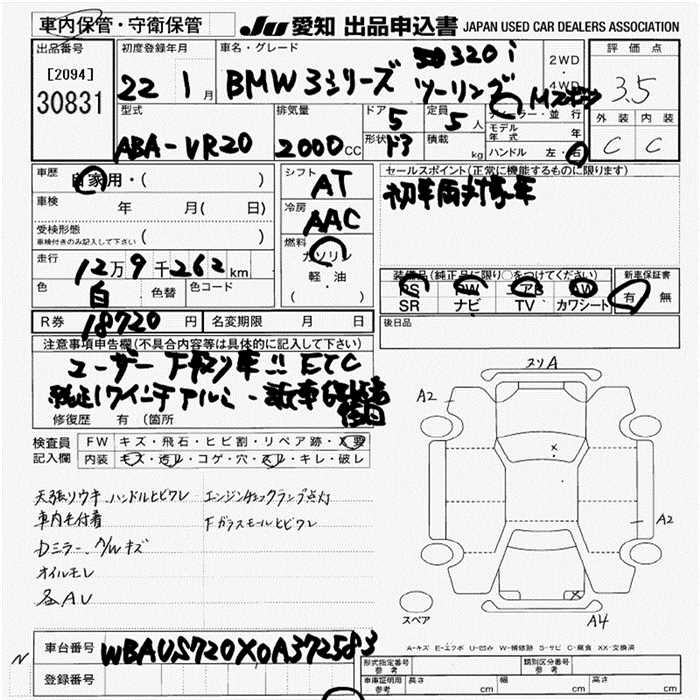 車内保管・守衛保管 JU 愛知 出品申込書 JAPAN USED CAR DEALERS ASSOCIATION
出品番号 初度登録年月 車名・グレード 評価点
[2094] 30831 22 1月 BMW 3シリーズ 320i ツーリング 2WD・4WD 3.5
型式 排気量 ドア 定員 ディーラー・並行 外装 内装
ABA-VR20 2000CC 5 5人 モデル年式 年 C C
形状 積載 kg ハンドル 左・右
車歴 自家用・( ) シフト AT セールスポイント(正常に機能するものに限ります)
車検 年 月( 日) 冷房 AAC
受検形態 ( )
車検付きのみ記入して下さい
燃料 ガソリン
走行 12万9千262km 軽・油
( )
装備品(純正品に限り○をつけてください) 新車保証書
色 白 色替 色コード PS PW エアB AW 有・無
SR ナビ TV カワシート
R券 18720円 名変期限 月 日 後日品
注意事項申告欄(不具合内容等は具体的に記入して下さい)
ユーザー下取り車!! ETC
純正17インチアルミ
修復歴 有 (箇所
検査員 FW キズ・飛石・ヒビ割・リペア跡・X要
記入欄 内装 キズ・汚レ・コゲ・穴・スレ・キレ・破レ
スリA
A2
A2
天張リウキ、ハンドルヒビワレ エンジンチェックランプ点灯
車内モケ着 Fガラスモールヒビワレ
Dミラー、A/Wキズ
オイルモレ
各AU
スペア A4
A-キズ E-エクボ U-凹み W-補修跡 S-サビ C-腐食 XX-交換済
車台番号 WBAUS720X0A372583
登録番号
形式指定番号 参考 類別区分番号 参考
車庫証明用 参考 長さ cm 幅 cm 高さ cm